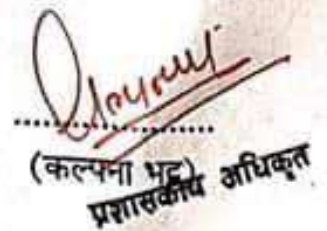 ....................
(कल्पना भट्ट)
प्रशासकीय अधिकृत